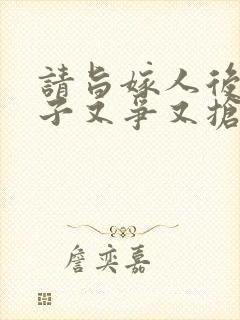 請旨嫁人後
子又爭又搶
詹奕嘉